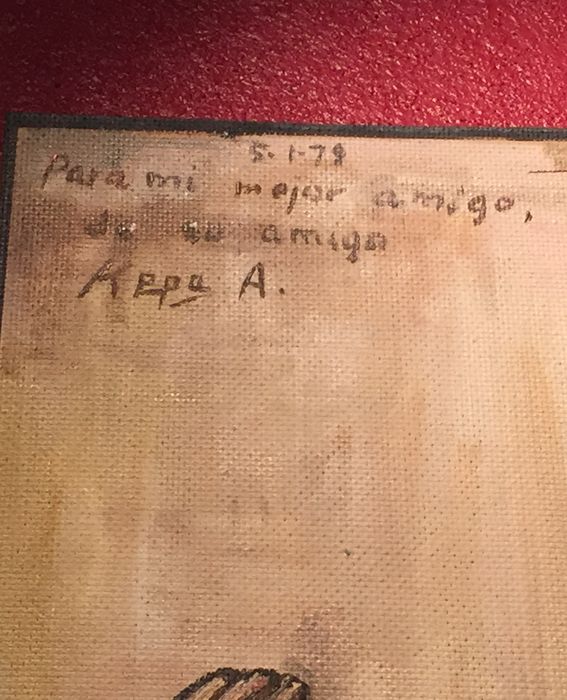 5-1-79
Para mi mejor amigo,
de su amigo
Kepa A.